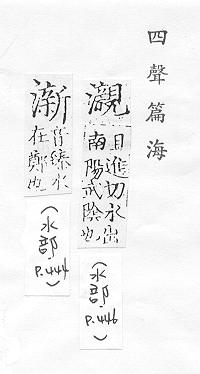 四聲篇海
且進切水出
南陽武陰也
(水部 P.446)
音臻水
在鄭也
(水部 P.444)